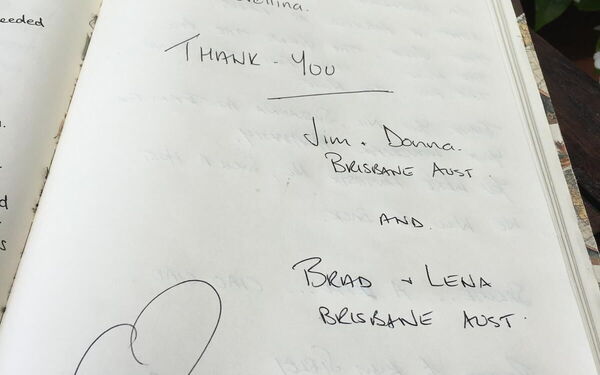 eeded
THANK - YOU
Jim + Donna.
BRISBANE AUST.
AND.
BRAD + LENA
BRISBANE AUST.